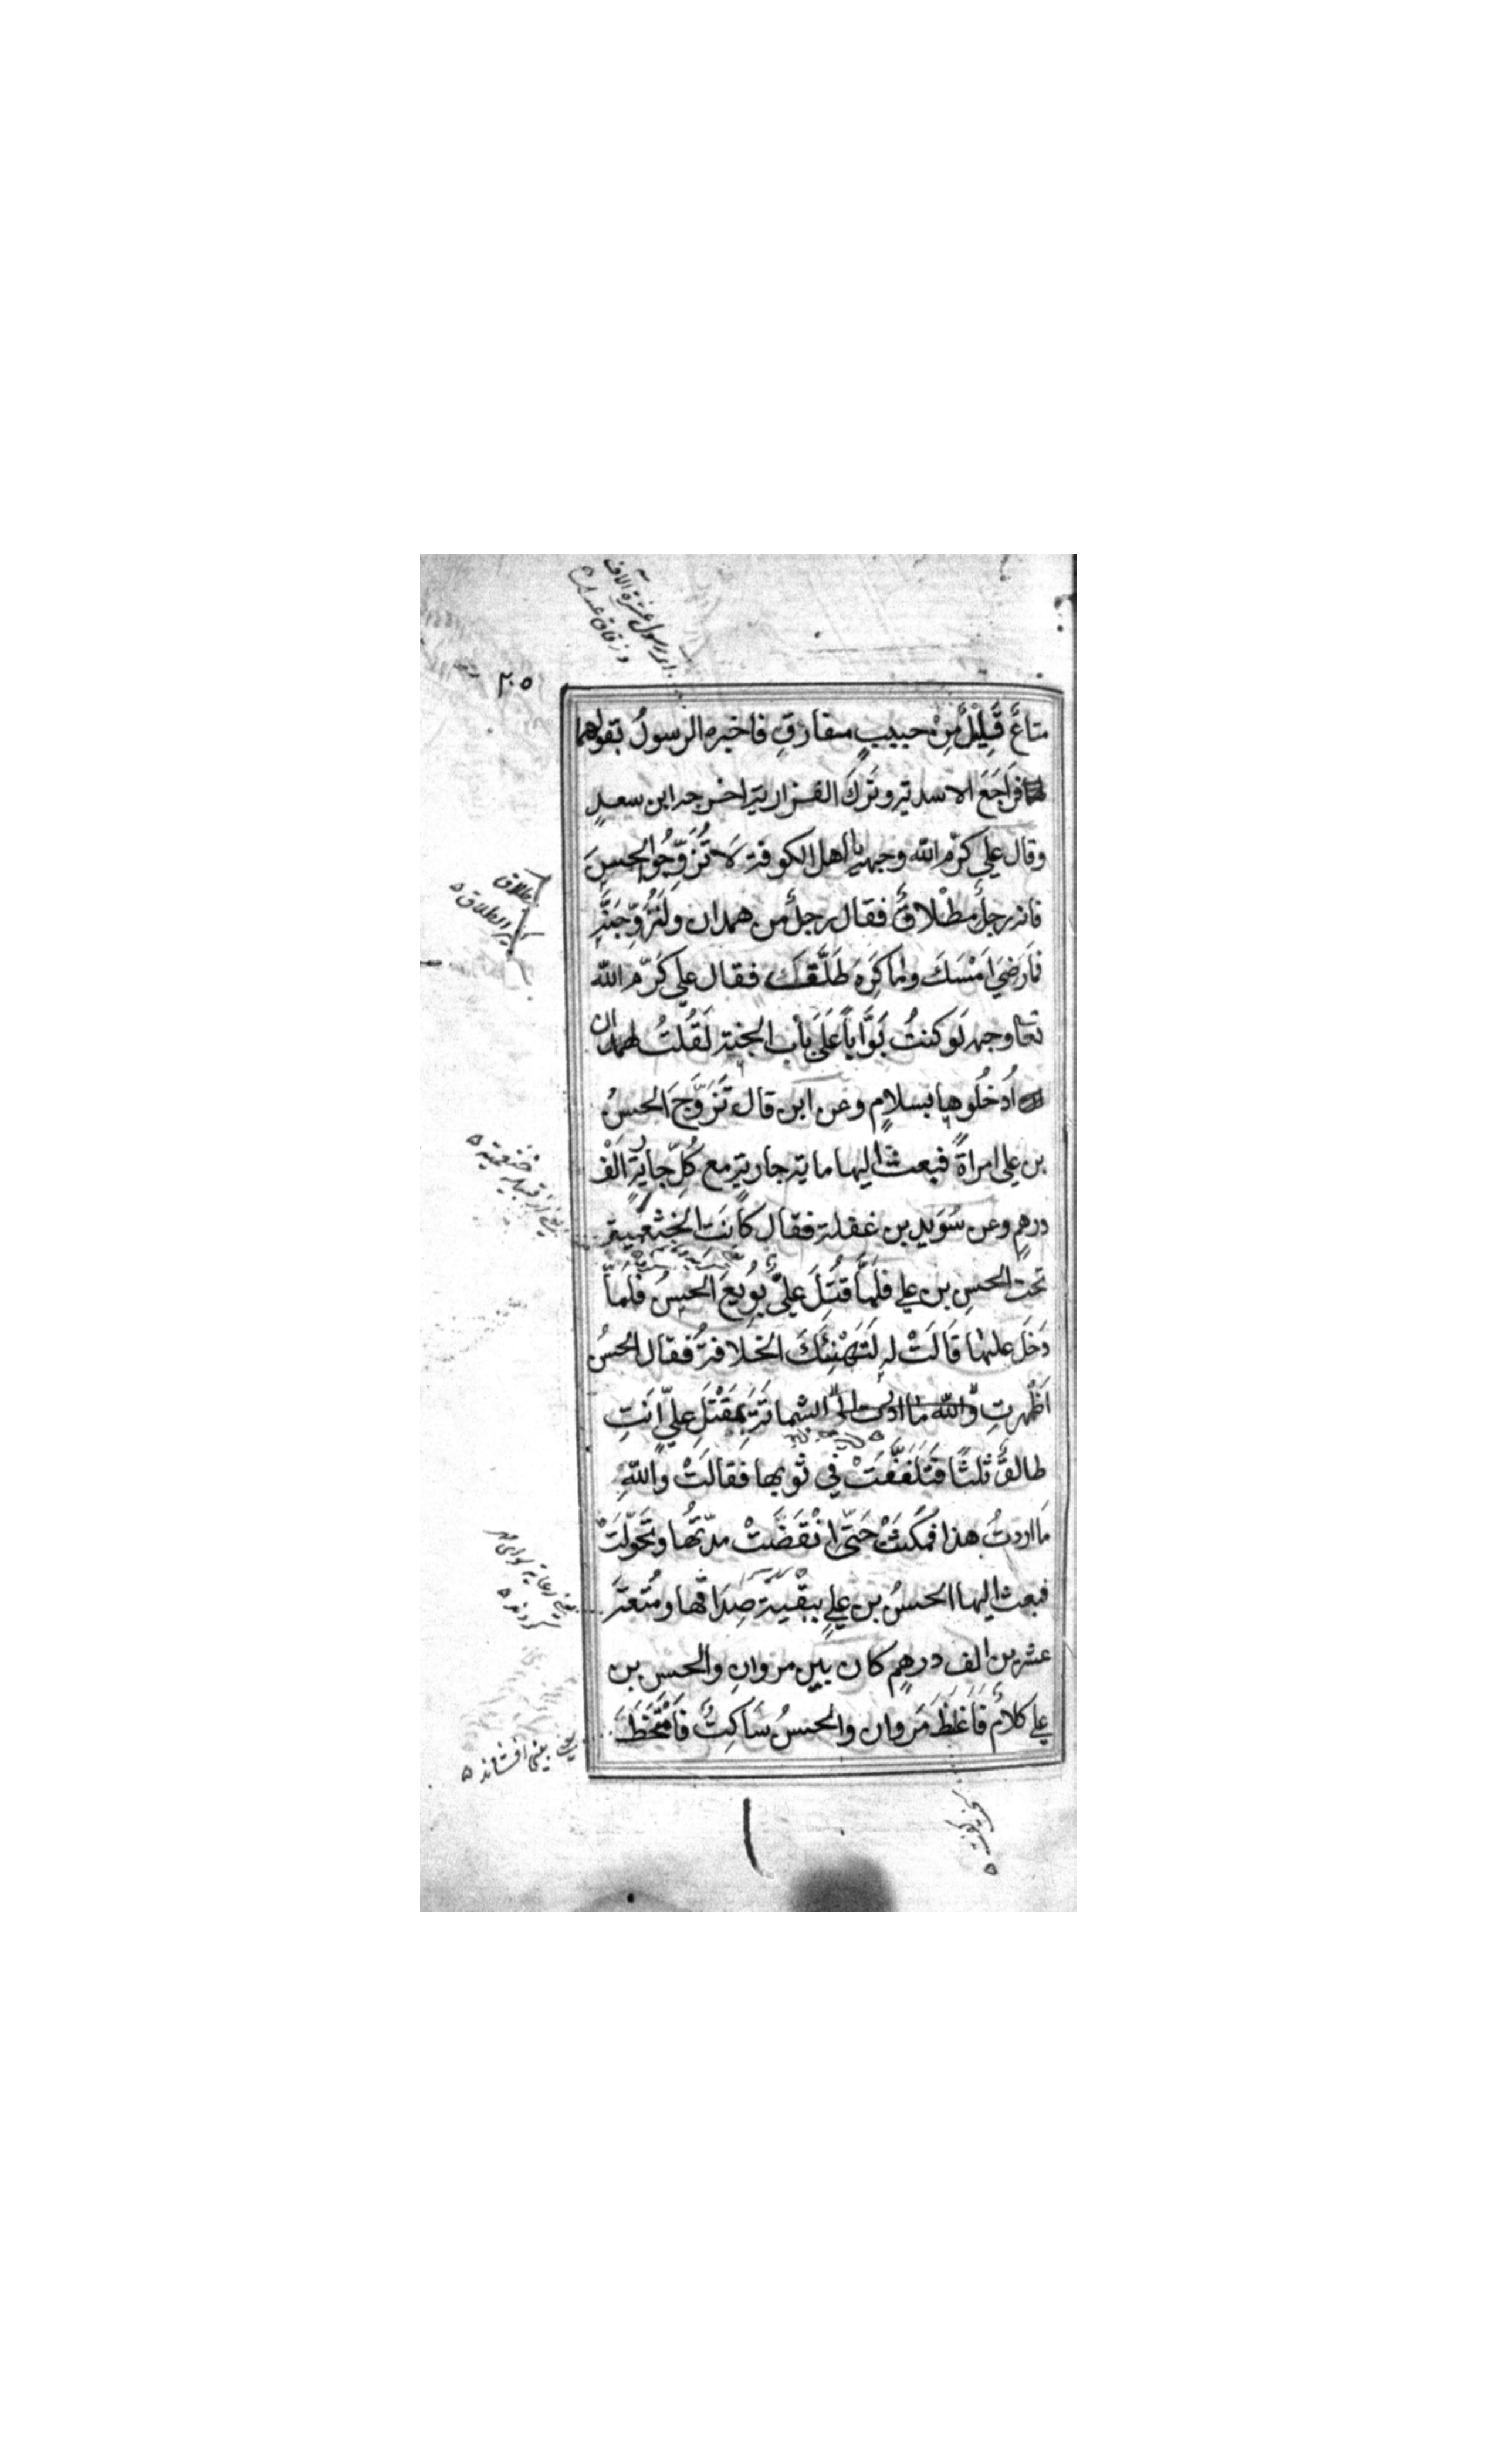 ٢٠٥
متاعٌ قَلِيْلٌ مِنْ حبيبٍ مفارقٍ فاخبره الرسولُ بقولهما
فَرَاجَعَ الاسديةَ وتَرَكَ الفزاريةَ اخرجه ابن سعدٍ
وقال علي كرّم الله وجهه يا اهل الكوفة لَا تُزَوِّجُوا الحسنَ
فانه رجلٌ مطْلاقٌ فقال رجلٌ من همدان ولَنُزَوِّجَنَّهُ
فمَارَضِيَ اَمْسَكَ وما كَرِهَ طَلَّقَ فقال علي كَرّم الله
تعا وجهه لَو كنتُ بَوَّاباً عَلَى بَابِ الجنة لَقُلتُ لهمدان
اُدخُلُوها بسلامٍ وعن ابن قال تَزَوَّجَ الحسنُ
بن علي امراةً فبعث اليها ماية جارية مع كُلِّ جارية اَلْف
درهمٍ وعن سُوَيدِ بن غفلة فقال كَانَتِ الخثعمية
تحت الحسنِ بن علي فلَمَّا قُتِلَ عليٌّ بُويِعَ الحسنُ فلَمَّا
دَخَلَ عليها قَالَتْ له لَتَهْنِئَكَ الخلافةُ فقال الحسنُ
اَظْهرتِ الشماتةَ بِمَقْتَلِ عليٍّ اَنتِ
طالقٌ ثلثًا فَتَلَفَّفَتْ في ثوبها فَقالَتْ واللهِ
مَا اردتُ هذا فمَكَثَتْ حَتّى انْقَضَتْ مدّتُها وتَحَوّلَتْ
فبعث اليها الحسنُ بن عليٍ ببقيةَ صِدَاقها ومُتعةَ
عشرين الف درهمٍ كان بين مروانِ والحسن بن
علي كلامٌ فَاَغلَظَ مَروان والحسنُ سَاكِتٌ فَامْتَخَطَ